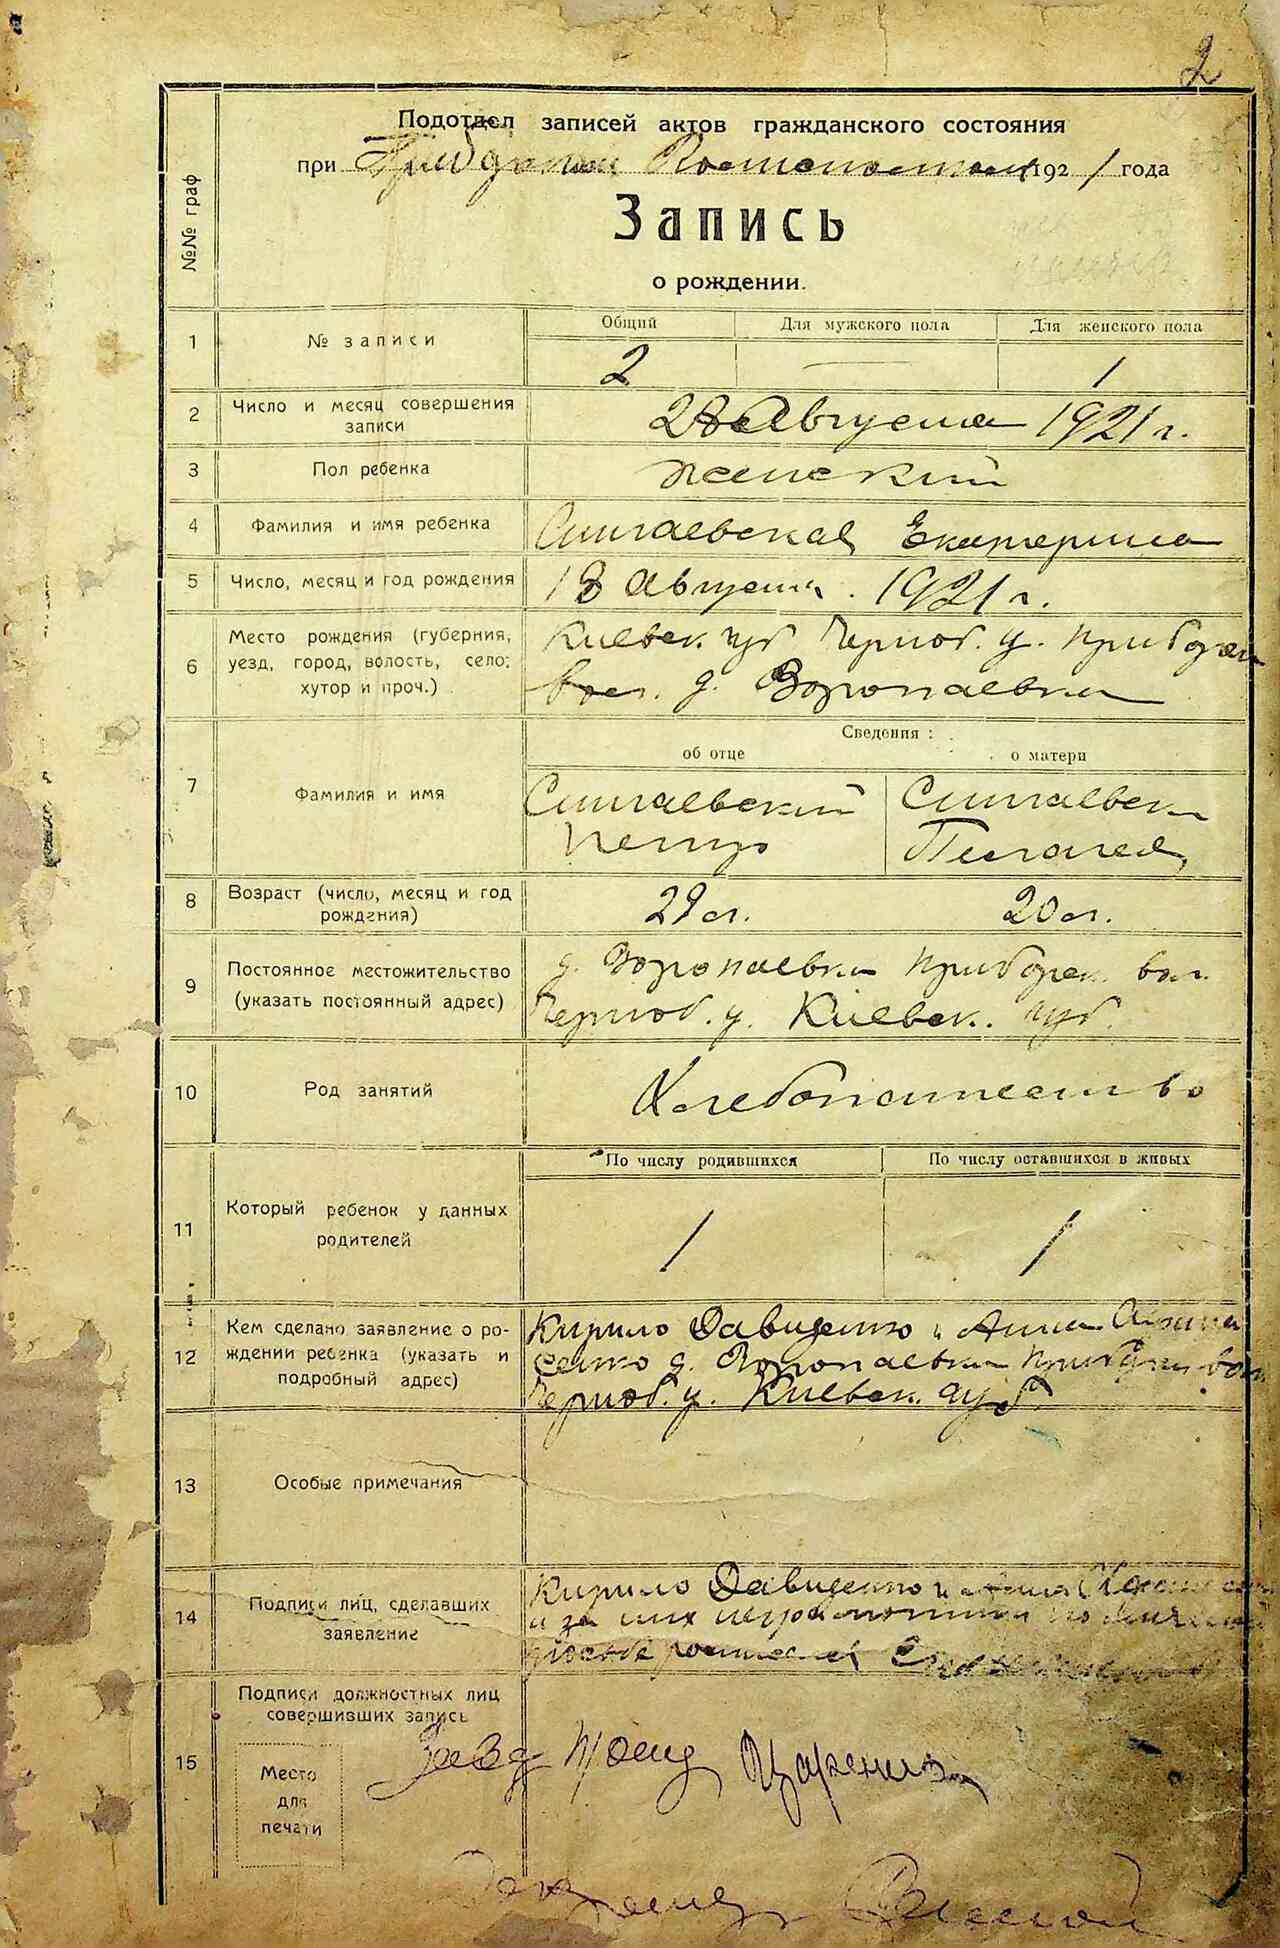 2
Подотдел записей актов гражданского состояния
при 1921 года
Запись
о рождении.
№№ граф
Общий Для мужского пола Для женского пола
1 № записи 2 — 1
2 Число и месяц совершения
записи
Августа 1921 г.
3 Пол ребенка женский
4 Фамилия и имя ребенка Сингаевская Екатерина
5 Число, месяц и год рождения 18 Августа 1921 г.
6 Место рождения (губерния,
уезд, город, волость, село;
хутор и проч.)
Киевск. губ Черноб. у. Приборск
вол. д. Воропаевка
Сведения:
об отце о матери
7 Фамилия и имя
Сингаевский Сингаевск
Петр Пелагея
8 Возраст (число, месяц и год
рождения)
29 л. 20 л.
9 Постоянное местожительство
(указать постоянный адрес)
д. Воропаевка Приборск. вол.
Черноб. у. Киевск. губ.
10 Род занятий Хлебопашество
По числу родившихся По числу оставшихся в живых
11 Который ребенок у данных
родителей
1 1
12 Кем сделано заявление о ро-
ждении ребенка (указать и
подробный адрес)
Кирило Давиденко и Анна
д. Воропаевка Приборск вол
Черноб. у. Киевск. губ.
13 Особые примечания
14 Подписи лиц, сделавших
заявление
Кирило Давиденко и Анна
и за них неграмотных по личной
просьбе росписался
15 Подписи должностных лиц
совершивших запись
Место
для
печати
Завд